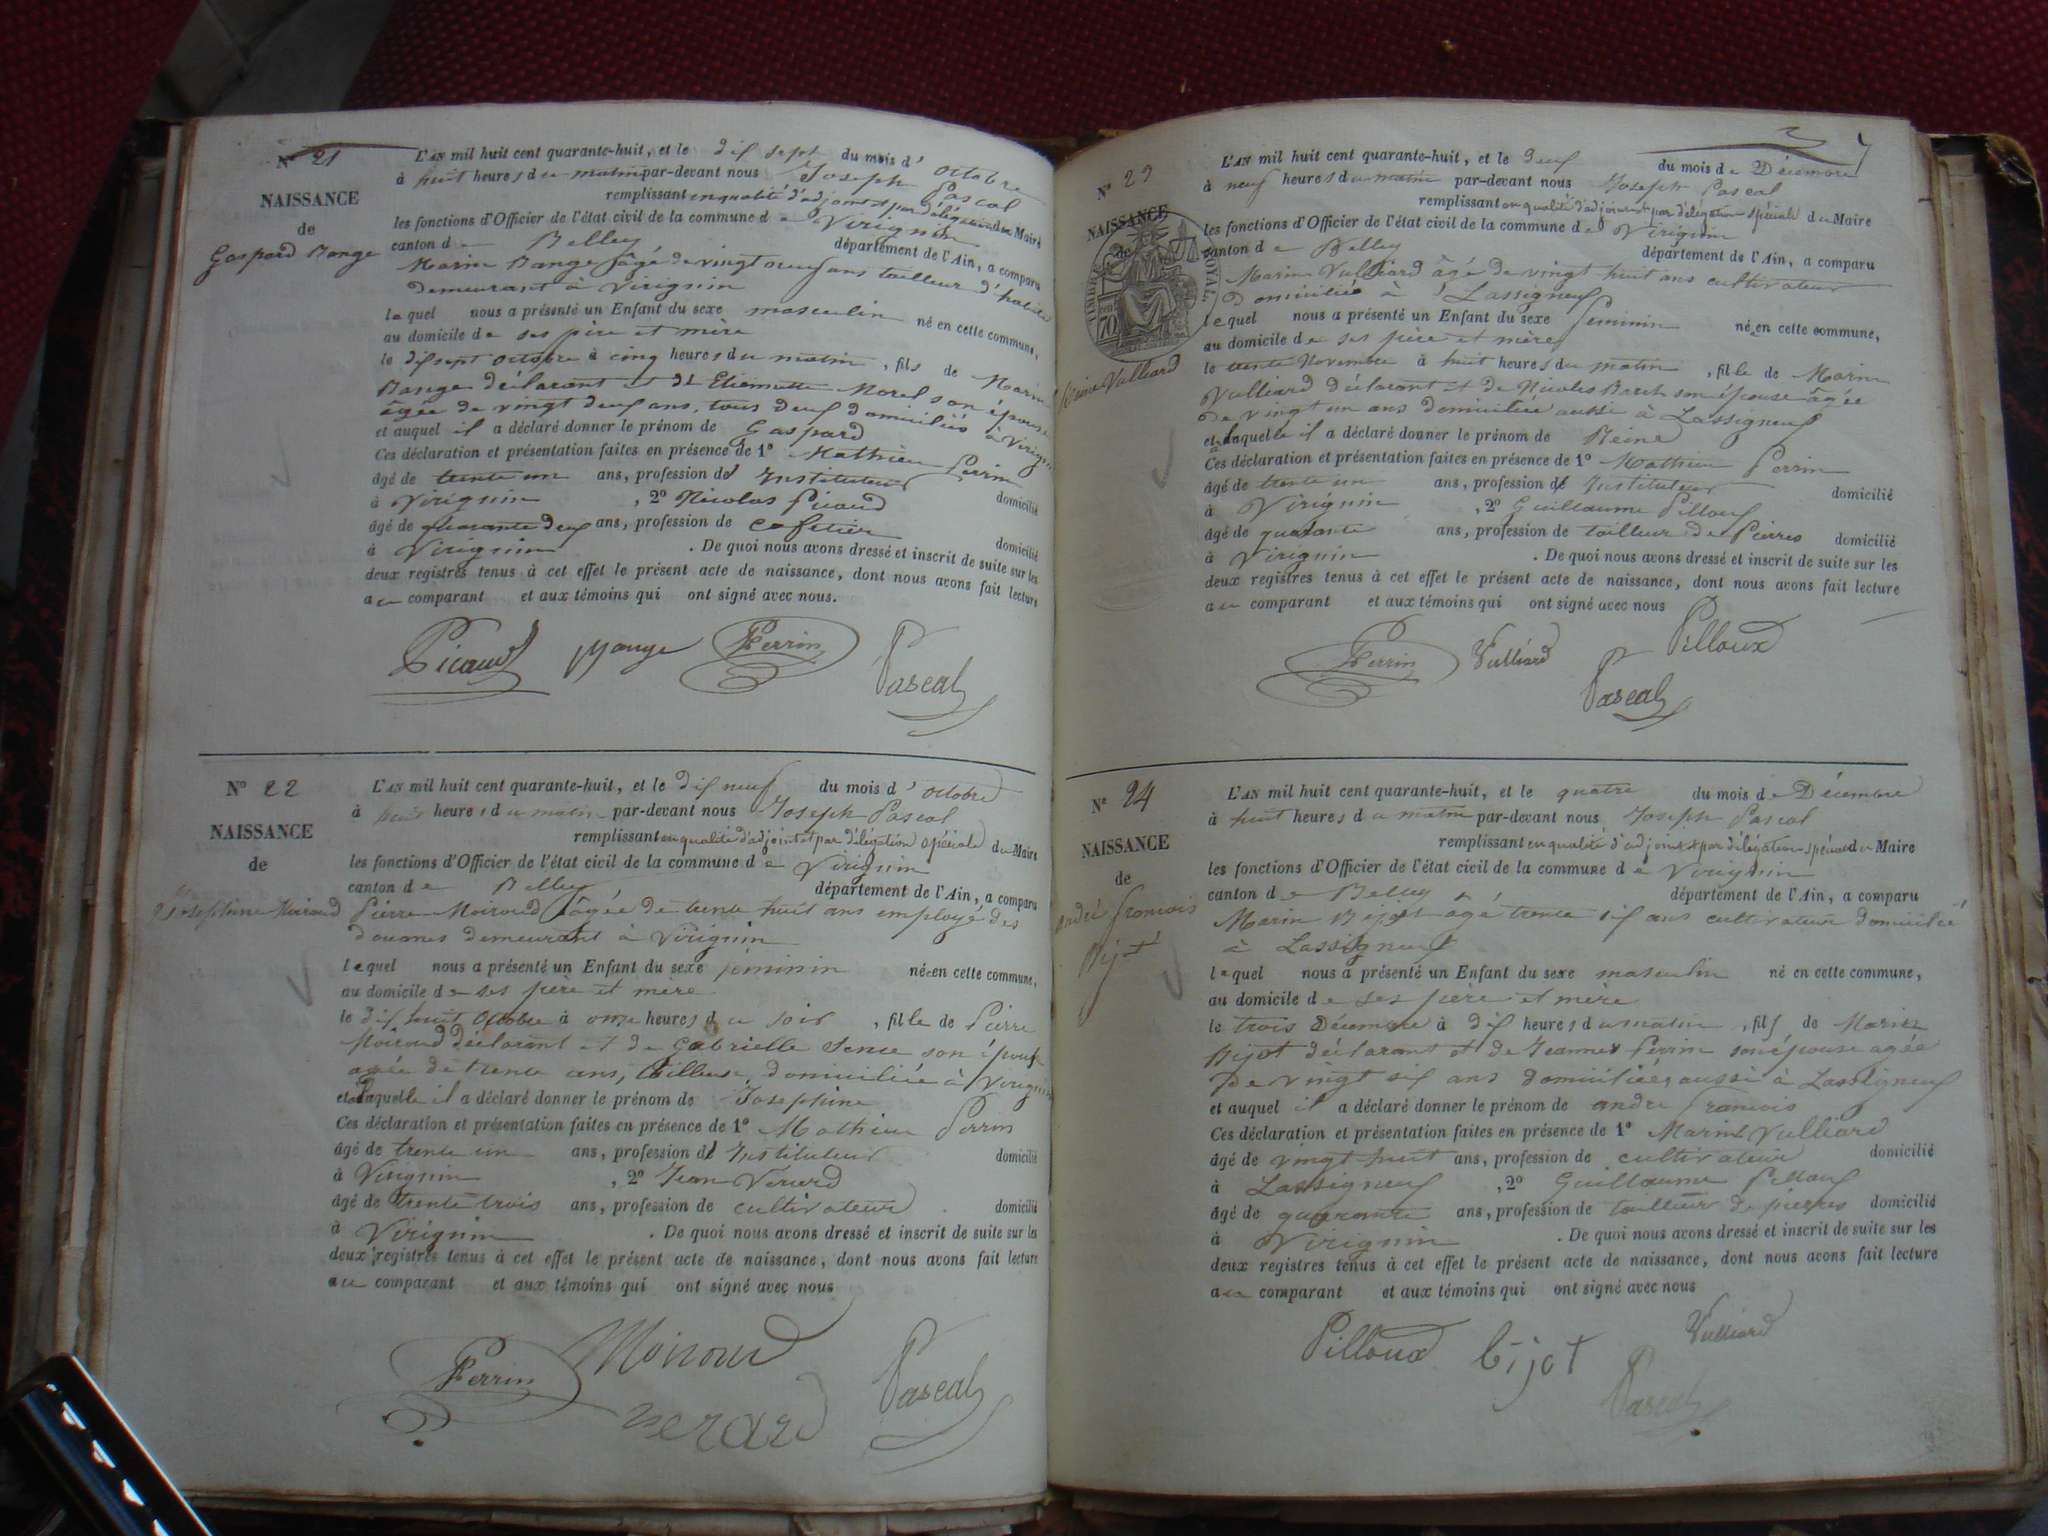 N° 21
NAISSANCE
de
Gaspard Mange
L'AN mil huit cent quarante-huit, et le dix sept du mois d' octobre
à huit heures du matin par-devant nous Joseph Pascal
remplissant en qualité d'adjoint et par délégation du Maire
les fonctions d'Officier de l'état civil de la commune de Virignin
canton de Belley département de l'Ain, a comparu
Marin Mange âgé de vingt neuf ans tailleur d'habits
demeurant à Virignin
lequel nous a présenté un Enfant du sexe masculin né en cette commune,
au domicile de ses père et mère
le dix sept octobre à cinq heures du matin, fils de Marin
Mange déclarant et de Etiennette Morel son épouse
âgée de vingt deux ans, tous deux domiciliés à Virignin
et auquel il a déclaré donner le prénom de Gaspard
Ces déclaration et présentation faites en présence de 1° Mathieu Perrin
âgé de trente un ans, profession d' Instituteur domicilié
à Virignin, 2° Nicolas Picaud
âgé de quarante deux ans, profession de cafetier domicilié
à Virignin. De quoi nous avons dressé et inscrit de suite sur les
deux registres tenus à cet effet le présent acte de naissance, dont nous avons fait lecture
au comparant et aux témoins qui ont signé avec nous.
Picaud Mange Perrin Pascal
N° 22
NAISSANCE
de
Josephine Moiroud
L'AN mil huit cent quarante-huit, et le dix neuf du mois d' octobre
à huit heures du matin par-devant nous Joseph Pascal
remplissant en qualité d'adjoint et par délégation spéciale du Maire
les fonctions d'Officier de l'état civil de la commune de Virignin
canton de Belley département de l'Ain, a comparu
Pierre Moiroud âgée de trente huit ans employé des
douanes demeurant à Virignin
lequel nous a présenté un Enfant du sexe féminin née en cette commune,
au domicile de ses père et mère
le dix huit octobre à onze heures du soir, fille de Pierre
Moiroud déclarant et de Gabrielle son épouse
agée de trente ans, domiciliée à Virignin
et à laquelle il a déclaré donner le prénom de Josephine
Ces déclaration et présentation faites en présence de 1° Mathieu Perrin
âgé de trente un ans, profession d' Instituteur domicilié
à Virignin, 2° Jean Verard
âgé de trente trois ans, profession de cultivateur domicilié
à Virignin. De quoi nous avons dressé et inscrit de suite sur les
deux registres tenus à cet effet le présent acte de naissance, dont nous avons fait lecture
au comparant et aux témoins qui ont signé avec nous
Perrin Moiroud Pascal
verard
N° 23
NAISSANCE
de
Reine Vulliard
TIMBRE ROYAL
70
L'AN mil huit cent quarante-huit, et le deux du mois de Décembre
à neuf heures du matin par-devant nous Joseph Pascal
remplissant en qualité d'adjoint et par délégation spéciale du Maire
les fonctions d'Officier de l'état civil de la commune de Virignin
canton de Belley département de l'Ain, a comparu
Marin Vulliard âgé de vingt huit ans cultivateur
domicilié à Lassigneux
lequel nous a présenté un Enfant du sexe feminin née en cette commune,
au domicile de ses père et mère
le trente Novembre à huit heures du matin, fille de Marin
Vulliard déclarant et de Nicolas son épouse âgée
de vingt un ans domiciliée aussi à Lassigneux
et à laquelle il a déclaré donner le prénom de Reine
Ces déclaration et présentation faites en présence de 1° Mathieu Perrin
âgé de trente un ans, profession d' Instituteur domicilié
à Virignin, 2° Guillaume Pilloux
âgé de quarante ans, profession de tailleur de Pierres domicilié
à Virignin. De quoi nous avons dressé et inscrit de suite sur les
deux registres tenus à cet effet le présent acte de naissance, dont nous avons fait lecture
au comparant et aux témoins qui ont signé avec nous
Perrin Vulliard Pilloux
Pascal
N° 24
NAISSANCE
de
andré francois
Bijot
L'AN mil huit cent quarante-huit, et le quatre du mois de Décembre
à huit heures du matin par-devant nous Joseph Pascal
remplissant en qualité d'adjoint et par délégation spéciale du Maire
les fonctions d'Officier de l'état civil de la commune de Virignin
canton de Belley département de l'Ain, a comparu
Marin Bijot âgé trente six ans cultivateur domicilié
à Lassigneux
lequel nous a présenté un Enfant du sexe masculin né en cette commune,
au domicile de ses père et mère
le trois Décembre à dix heures du matin, fils de Marin
Bijot déclarant et de Jeanne Perrin son épouse agée
de vingt six ans domiciliées aussi à Lassigneux
et auquel il a déclaré donner le prénom de andré francois
Ces déclaration et présentation faites en présence de 1° Marin Vulliard
âgé de vingt huit ans, profession de cultivateur domicilié
à Lassigneux, 2° Guillaume Pilloux
âgé de quarante ans, profession de tailleur de pierres domicilié
à Virignin. De quoi nous avons dressé et inscrit de suite sur les
deux registres tenus à cet effet le présent acte de naissance, dont nous avons fait lecture
au comparant et aux témoins qui ont signé avec nous
Pilloux bijot Vulliard
Pascal